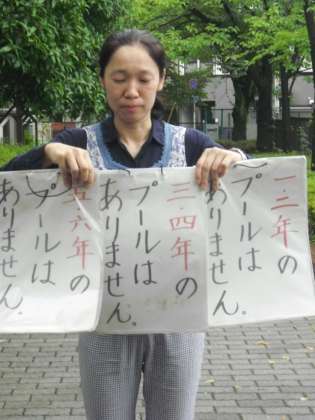 一・二年の
プールは
ありません。
三・四年の
プールは
ありません。
五・六年の
プールは
ありません。